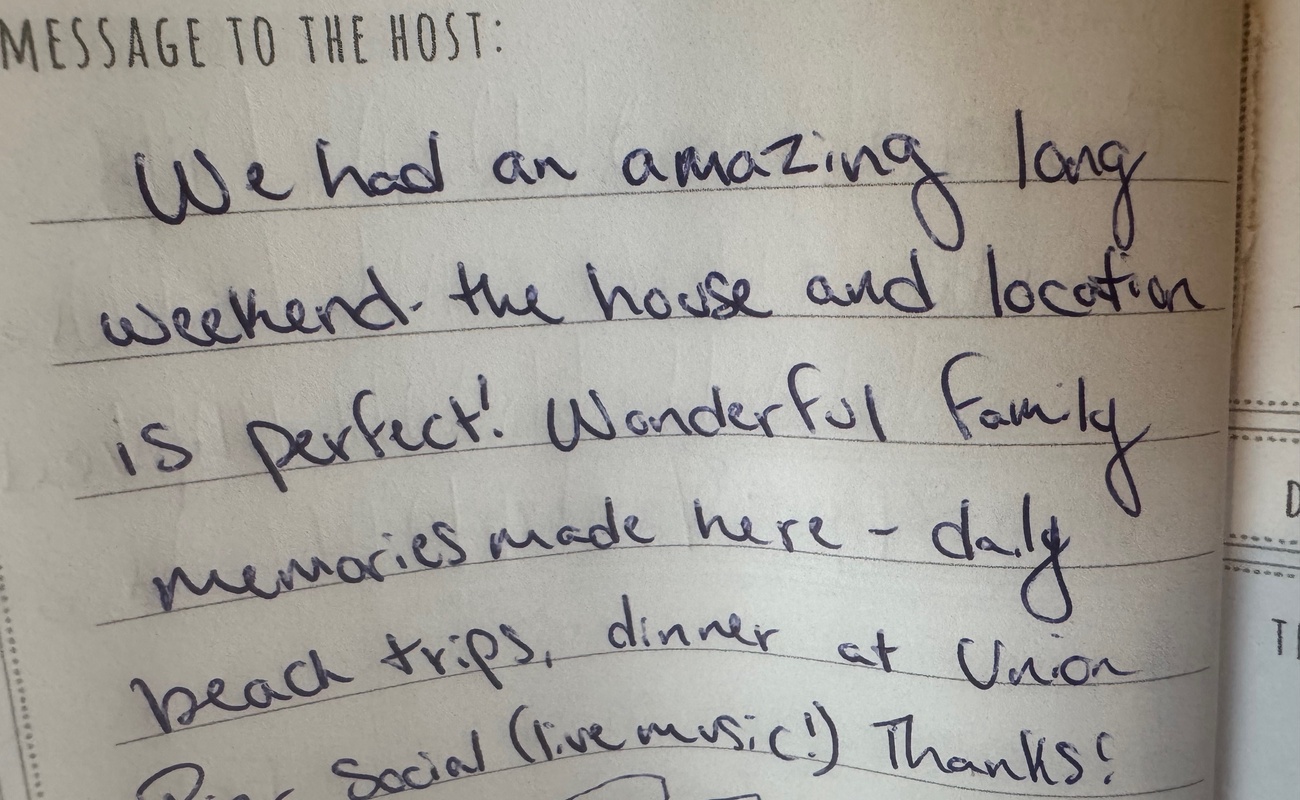 MESSAGE TO THE HOST:
We had an amazing long
weekend. the house and location
is perfect! Wonderful family
memories made here - daily
beach trips, dinner at Union
Social (live music!) Thanks!
D